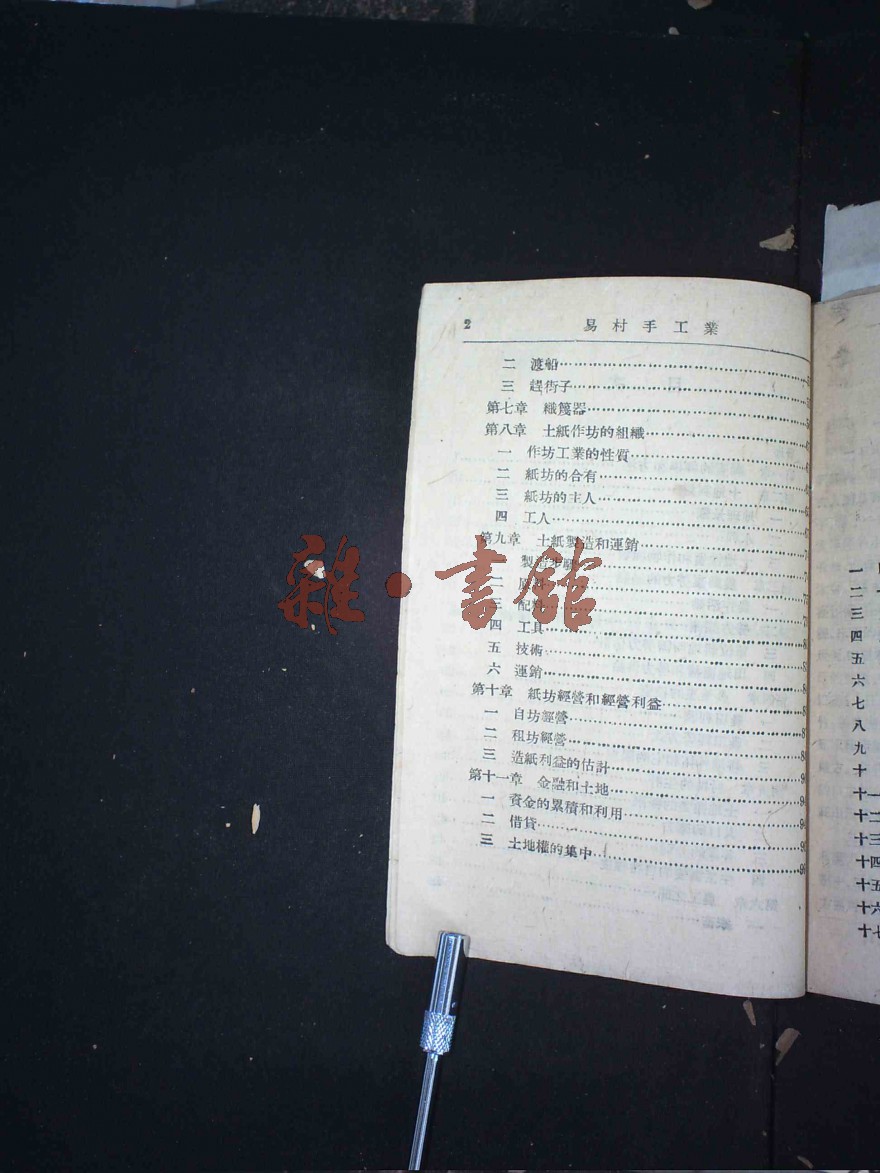 2 易村手工業
二 渡船
三 趕街子
第七章 織篾器
第八章 土紙作坊的組織
一 作坊工業的性質
二 紙坊的合有
三 紙坊的主人
四 工人
第九章 土紙製造和運銷
製造步驟
二 原料
三 配料
四 工具
五 技術
六 運銷
第十章 紙坊經營和經營利益
一 自坊經營
二 租坊經營
三 造紙利益的估計
第十一章 金融和土地
一 資金的累積和利用
二 借貸
三 土地權的集中
雜·書館
一
二
三
四
五
六
七
八
九
十
十一
十二
十三
十四
十五
十六
十七